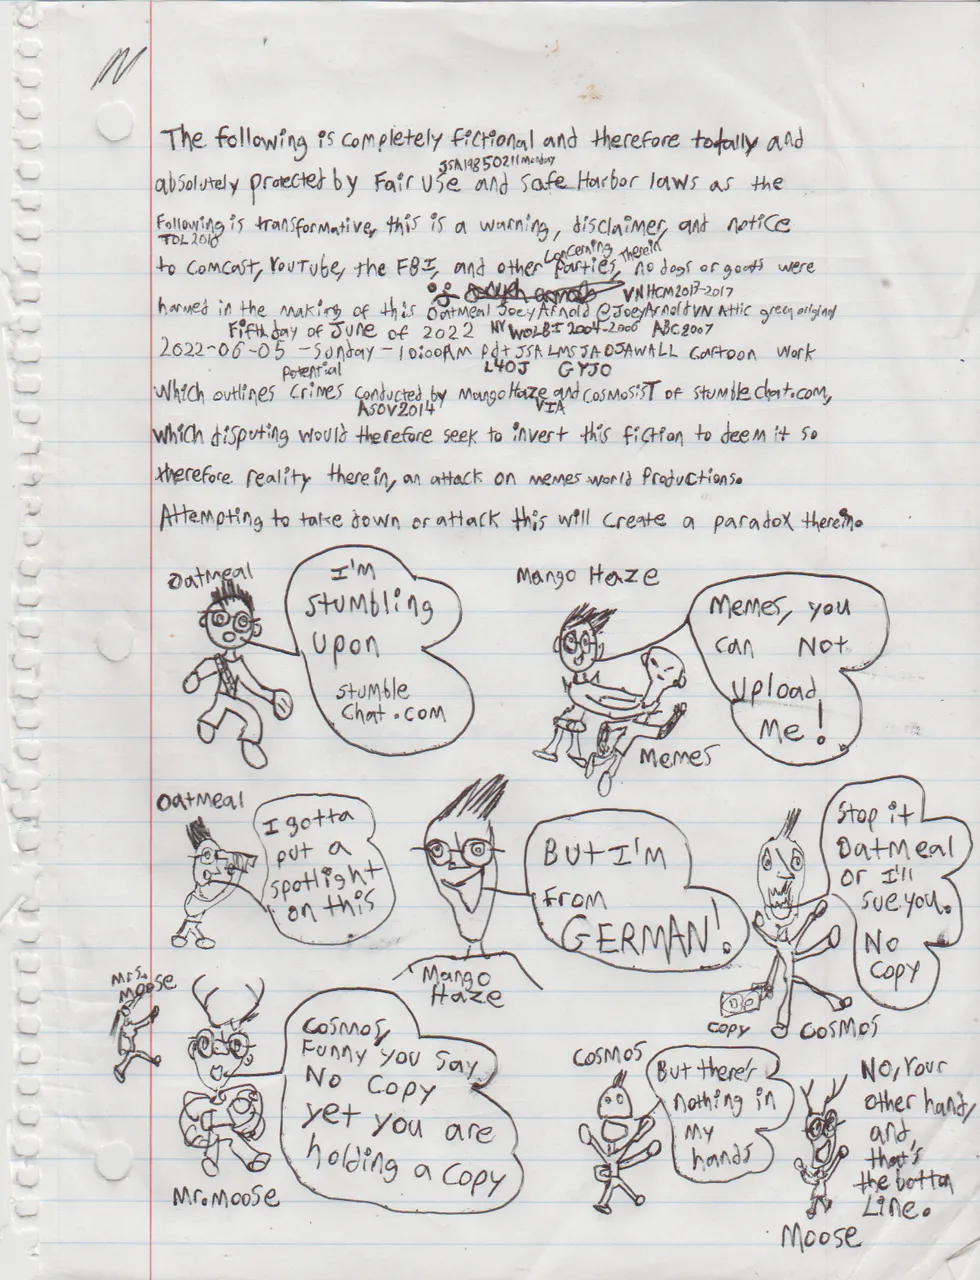 The following is completely fictional and therefore totally and
JSA19850211Monday
absolutely protected by Fair Use and Safe Harbor laws as the
Following is transformative, this is a warning, disclaimer, and notice
TDL2010
concerning therein
to Comcast, YouTube, the FBI, and other parties, no dogs or goats were
VNHCM2013-2017
harmed in the making of this Oatmeal JoeyArnold @JoeyArnoldVN Attic green original
Fifth day of June of 2022 NY WOLBI 2004-2006 ABC2007
2022-06-05 - Sunday - 10:00AM pdt JSA LMS JADJAWALL Cartoon Work
potential L4OJ GYJO
which outlines crimes conducted by Mango Haze and CosmosisT of stumblechat.com,
ASOV2014 VIA
which disputing would therefore seek to invert this fiction to deem it so
therefore reality therein, an attack on memes world Productions.
Attempting to take down or attack this will create a paradox therein.
Oatmeal
I'm
stumbling
upon
stumble
chat.com
Mango Haze
Memes, you
can Not
upload
Me!
Memes
Oatmeal
I gotta
put a
spotlight
on this
But I'm
from
GERMAN!
Mango
Haze
Stop it
Oatmeal
or I'll
sue you.
No
copy
copy
Cosmos
Mrs.
Moose
Cosmos,
Funny you say
No Copy
yet you are
holding a copy
Mr. Moose
Cosmos
But there's
nothing in
my
hands
No, Your
other hand,
and,
that's
the bottom
Line.
Moose